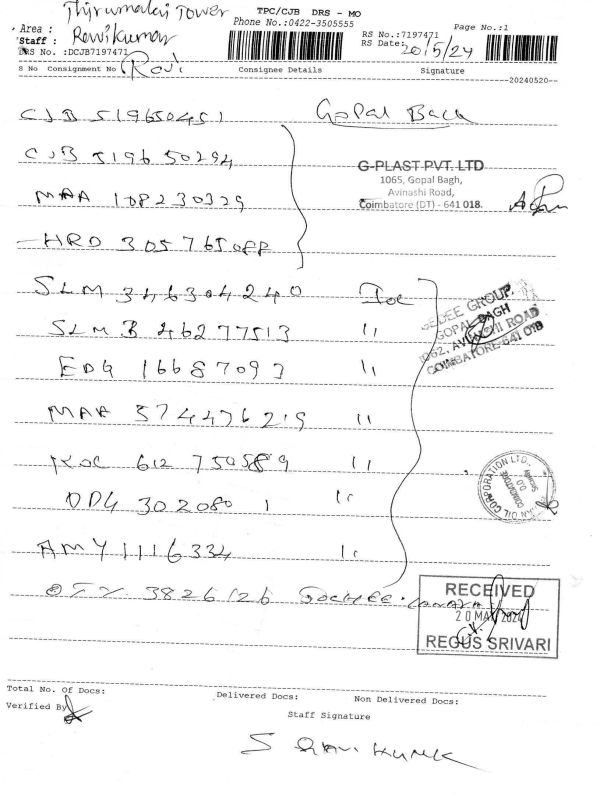 Thirumalai Tower
TPC/CJB DRS - MO
Phone No.:0422-3505555
Area :
Staff : Ravikumar
DRS No. :DCJB7197471
RS No.:7197471
RS Date: 20/5/24
Page No.:1
S No Consignment No Ravi Consignee Details Signature
--20240520--
CJB 519650451 Gopal Bagh
CJB 519650294
MAA 108230329
HRD 305765088
G-PLAST PVT. LTD
1065, Gopal Bagh,
Avinashi Road,
Coimbatore (DT) - 641 018.
SLM 346304240 Ioc
SLM B 46277513 "
GEDEE GROUP,
GOPAL BAGH
1062, AVINASHI ROAD
COIMBATORE-641 018
EDG 16687097 "
MAA 574476219 "
KOC 612750589 "
DDG 302080 1 "
INDIAN OIL CORPORATION LTD.
COIMBATORE
D.O.
AMY 1116334 "
3826126
RECEIVED
20 MAY 2024
REGUS SRIVARI
Total No. Of Docs:
Delivered Docs:
Non Delivered Docs:
Verified By
Staff Signature
S